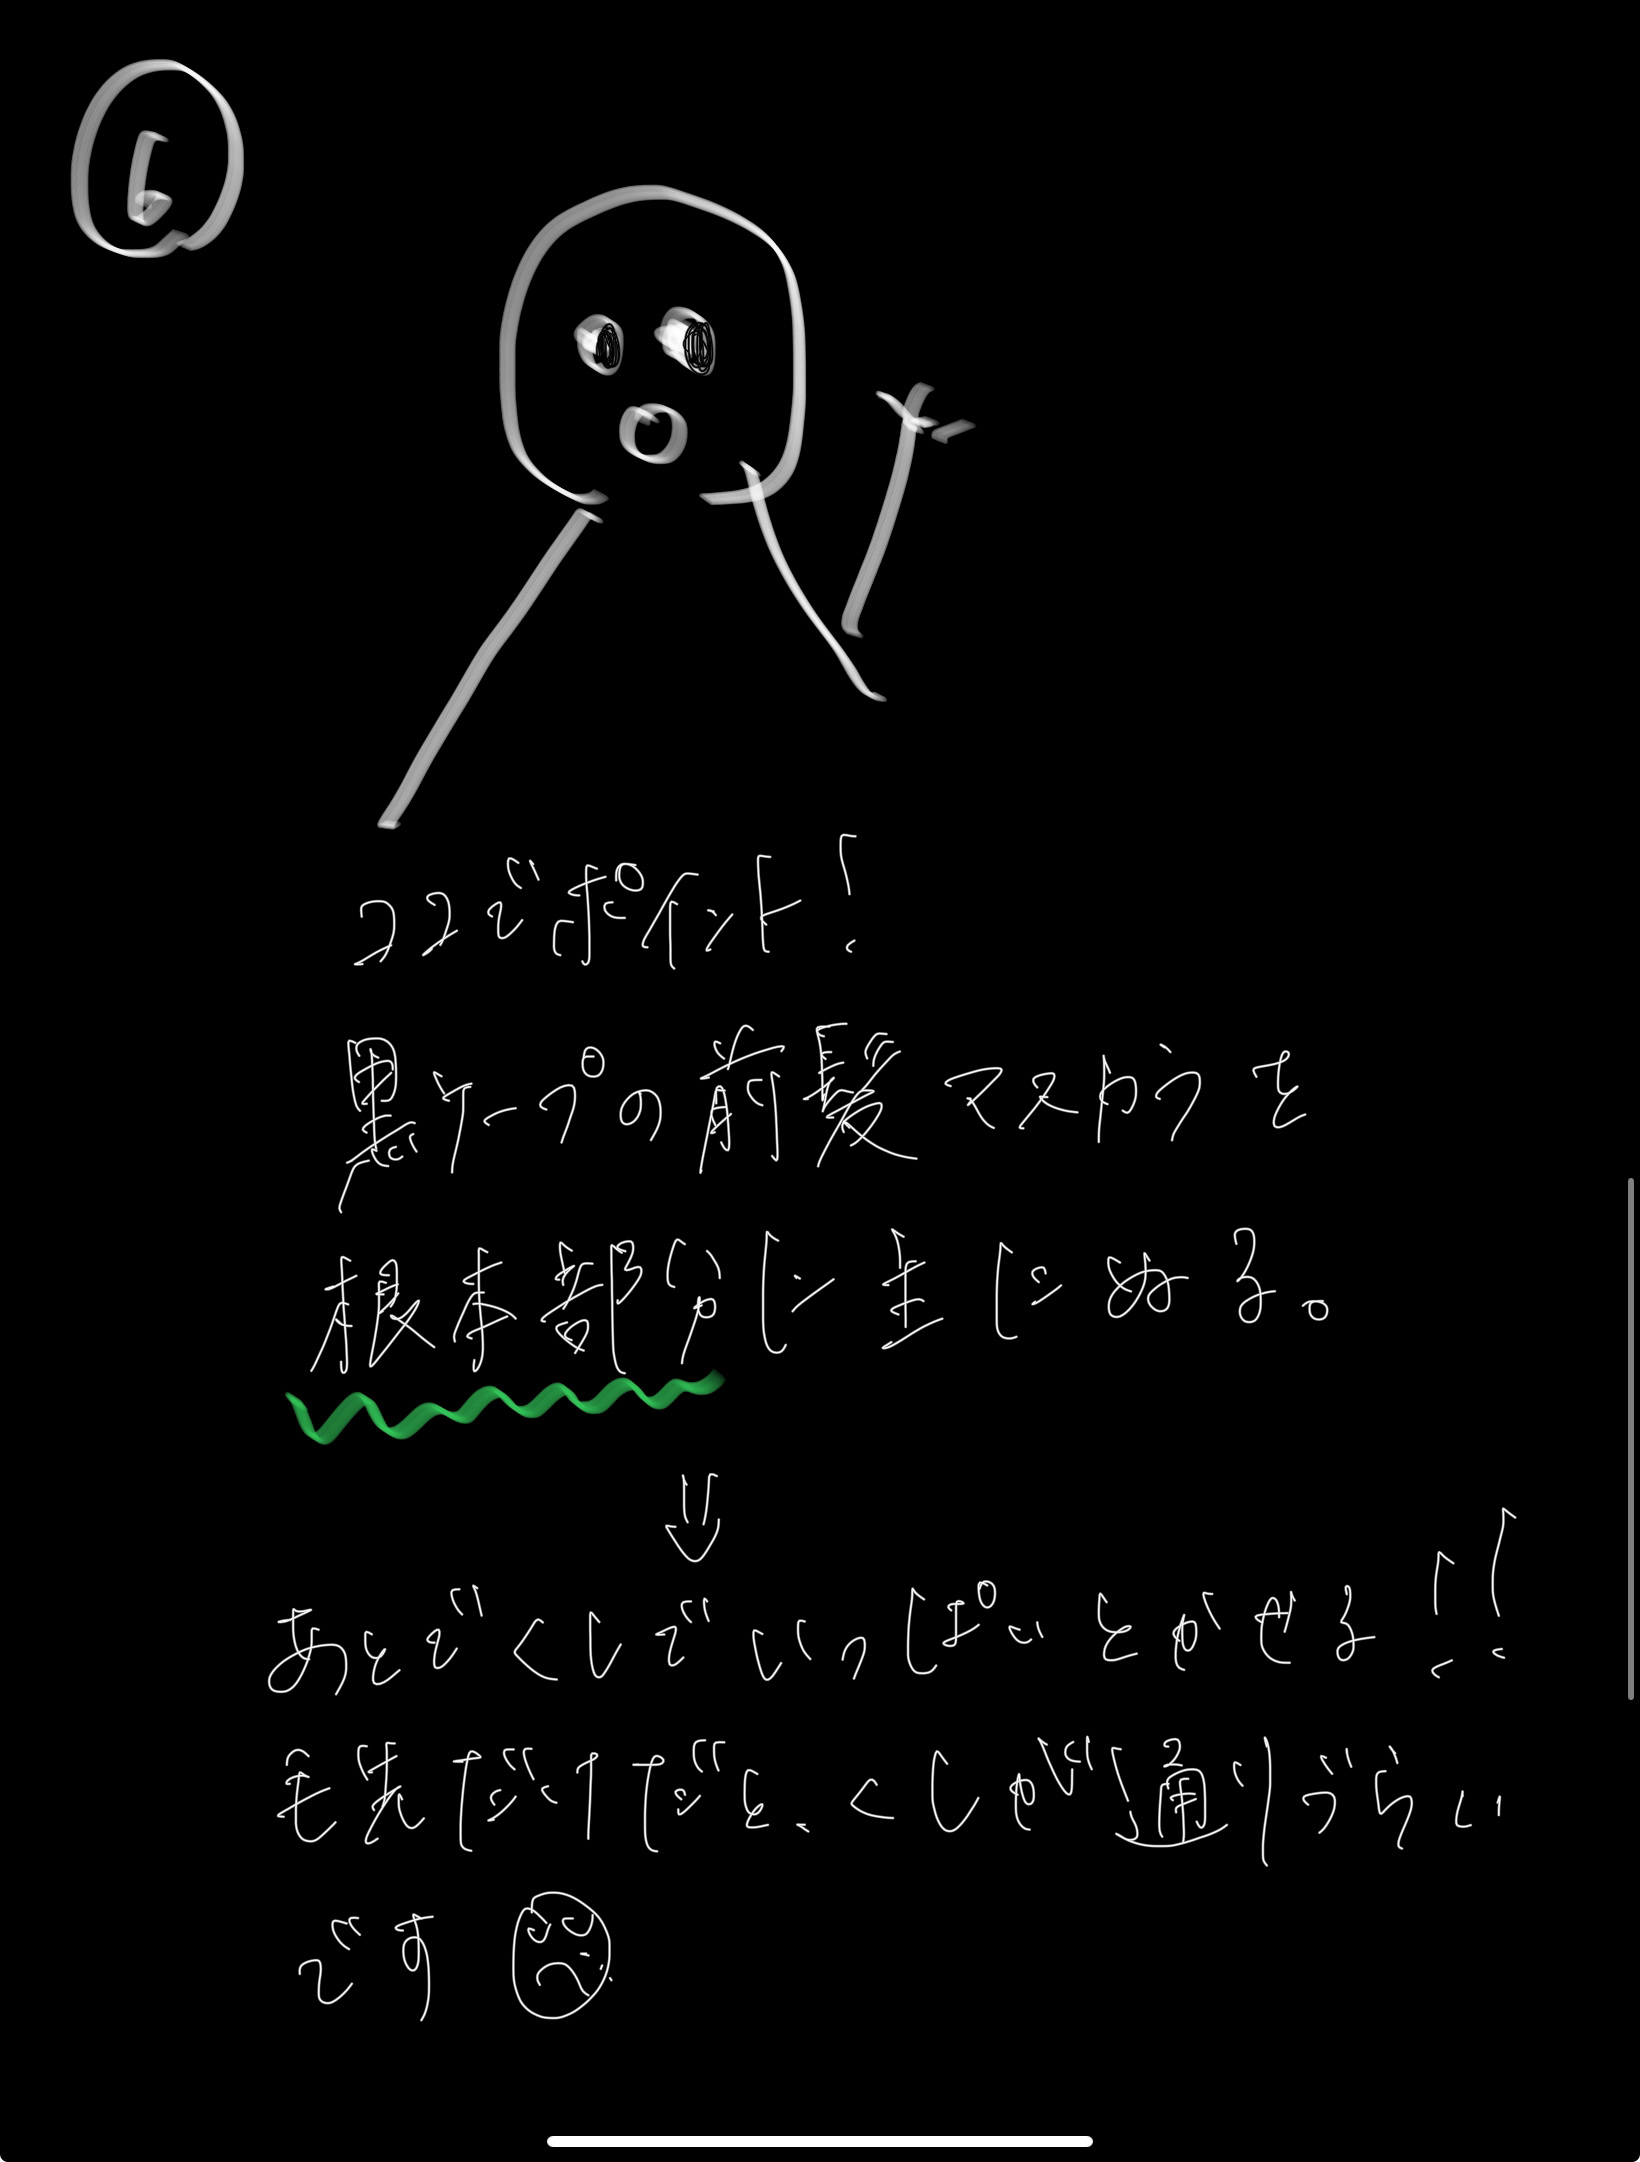 ⑥
ココでポイント!
黒ケープの前髪マスカラを
根本部分に主にぬる。
あとでくしでいっぱいとかせる!!
毛先だけだと、くしが通りづらい
です